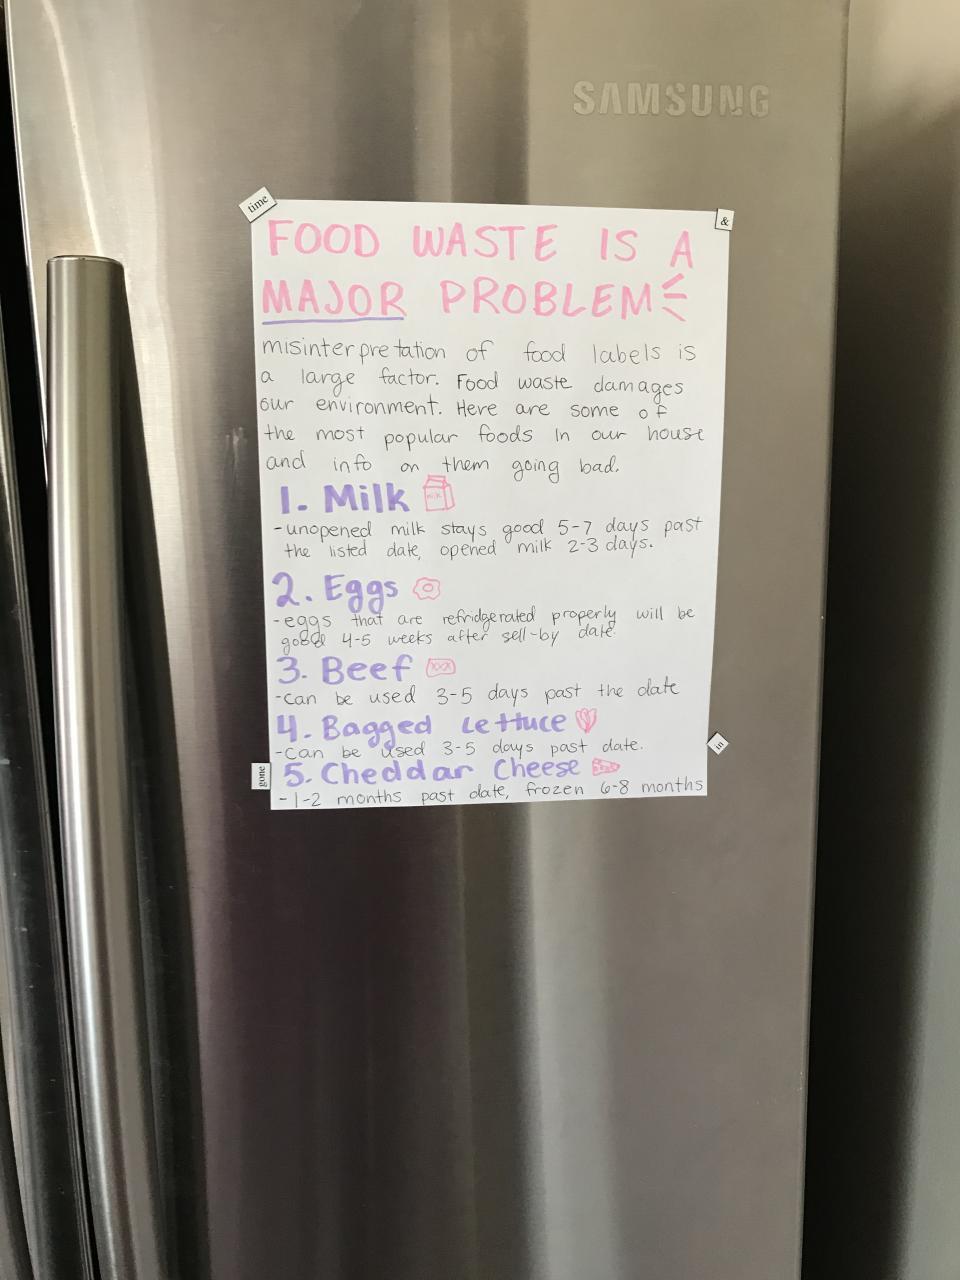 SAMSUNG
time
&
FOOD WASTE IS A
MAJOR PROBLEM
misinterpretation of food labels is
a large factor. Food waste damages
our environment. Here are some of
the most popular foods in our house
and info on them going bad.
1. Milk
milk
-unopened milk stays good 5-7 days past
the listed date, opened milk 2-3 days.
2. Eggs
-eggs that are refridgerated properly will be
good 4-5 weeks after sell-by date.
3. Beef
-can be used 3-5 days past the date
4. Bagged Lettuce
-can be used 3-5 days past date.
in
5. Cheddar Cheese
gone
-1-2 months past date, frozen 6-8 months